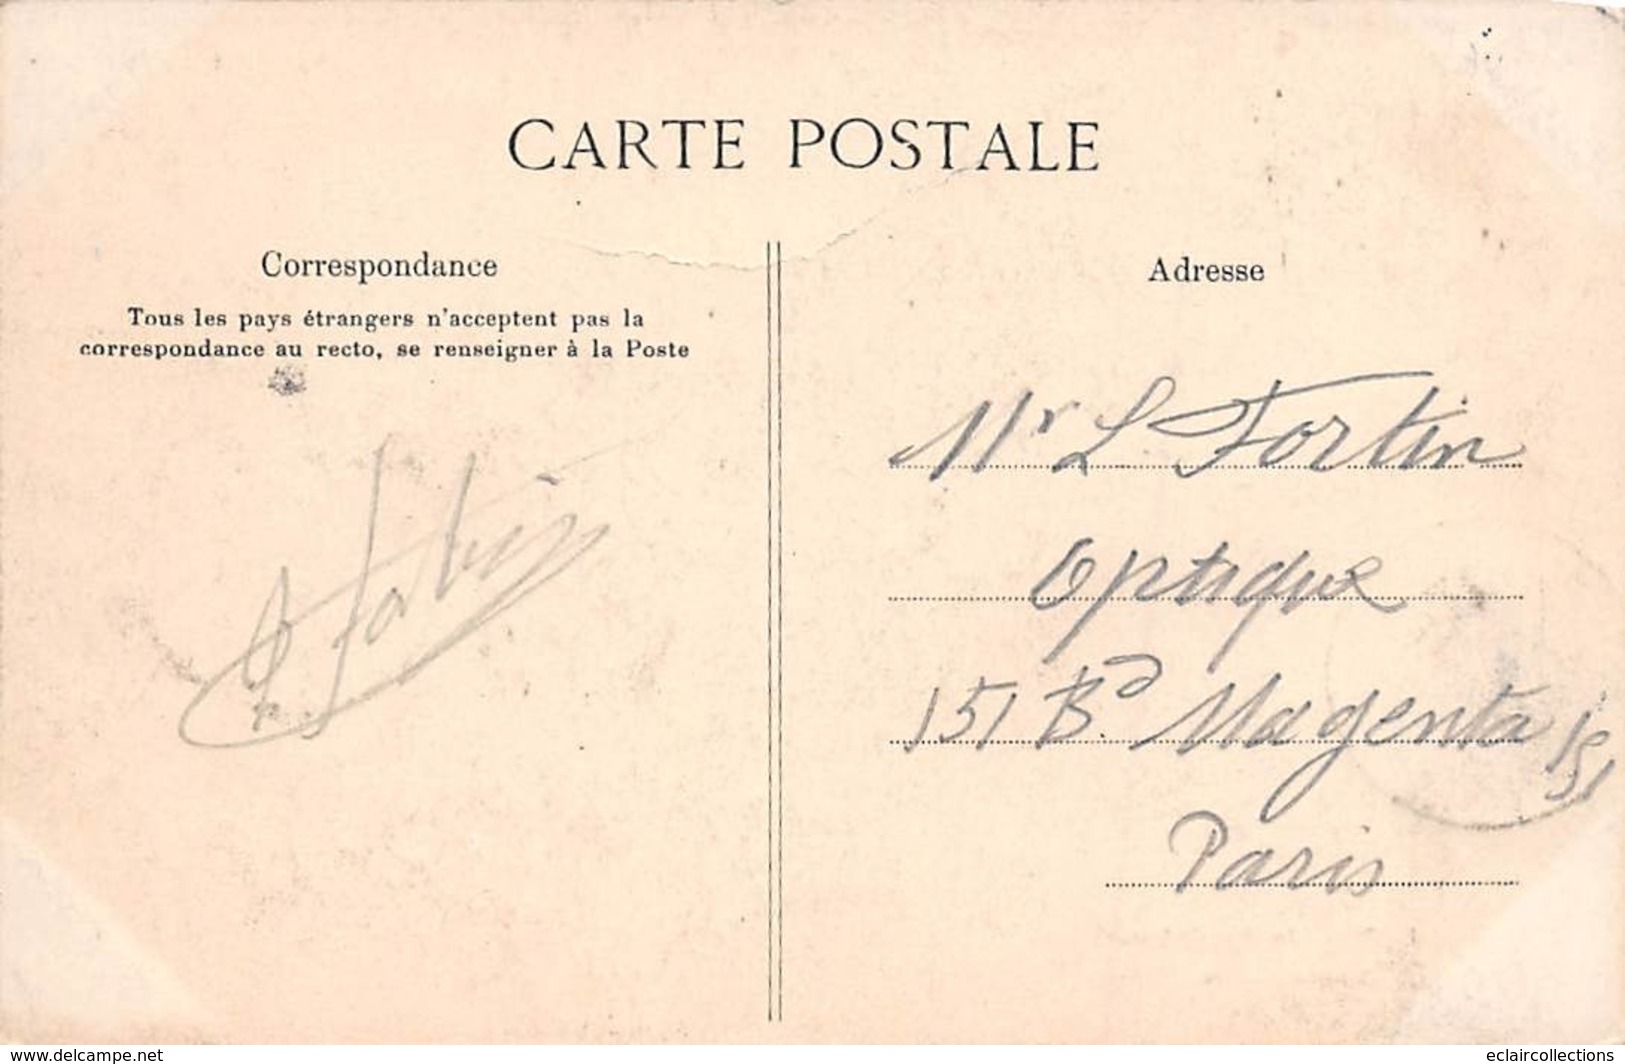 CARTE POSTALE
Correspondance
Tous les pays étrangers n'acceptent pas la
correspondance au recto, se renseigner à la Poste
Adresse
Mr L Fortin
Optique
151 Bd. Magenta 151
Paris
www.delcampe.net
eclaircollections